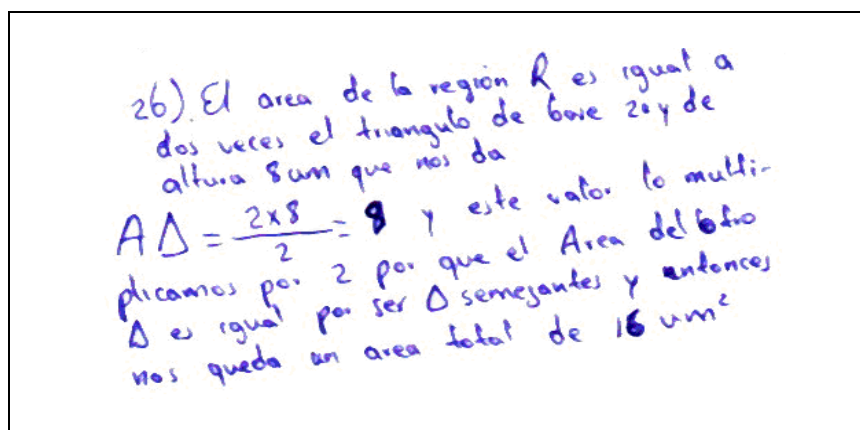 26). El area de la región R es igual a
dos veces el triangulo de base 2 y de
altura 8 um que nos da
A Δ = 2x8 / 2 = 8 y este valor lo multi-
plicamos por 2 por que el Area del otro
Δ es igual por ser Δ semejantes y entonces
nos queda un area total de 16 um²